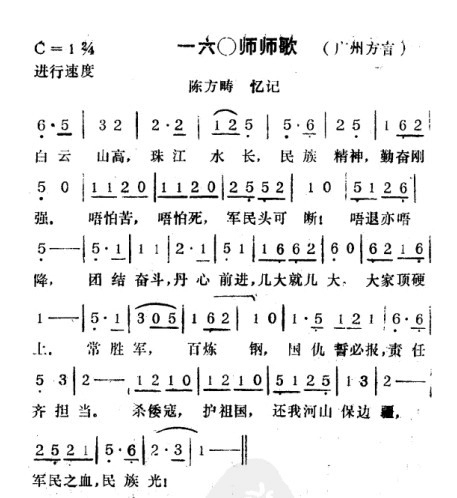 C＝1 2/4 一六〇师师歌 （广州方言）
进行速度
陈方畴 忆记
6·5 | 3 2 | 2·2 | 1 2 5 | 5·6 | 2 5 | 1 6 2 |
白云 山高，珠江 水长，民族 精神，勤奋刚
5 0 | 1 1 2 0 | 1 1 2 0 | 2 5 5 2 | 1 0 | 5 1 2 6 |
强。唔怕苦，唔怕死，军民头可 断！唔退亦唔
5 — | 5·1 | 1 2 | 2·1 | 5 1 | 1 6 6 2 | 6 0 | 6 2 1 6 |
降，团结奋斗，丹心前进，几大就几大，大家顶硬
1 — | 5·1 | 3 0 5 | 1·2 | 1 0 | 1·5 1 2 1 | 6·6 |
上。常胜军，百炼 钢，国仇誓必报，责任
5 3 | 2 — | 1 2 1 0 | 1 2 1 0 | 5 1 2 5 | 5·3 | 2 — |
齐担当。杀倭寇，护祖国，还我河山保边疆，
2 5 2 1 | 5·6 | 2·3 | 1 — ‖
军民之血，民族 光！